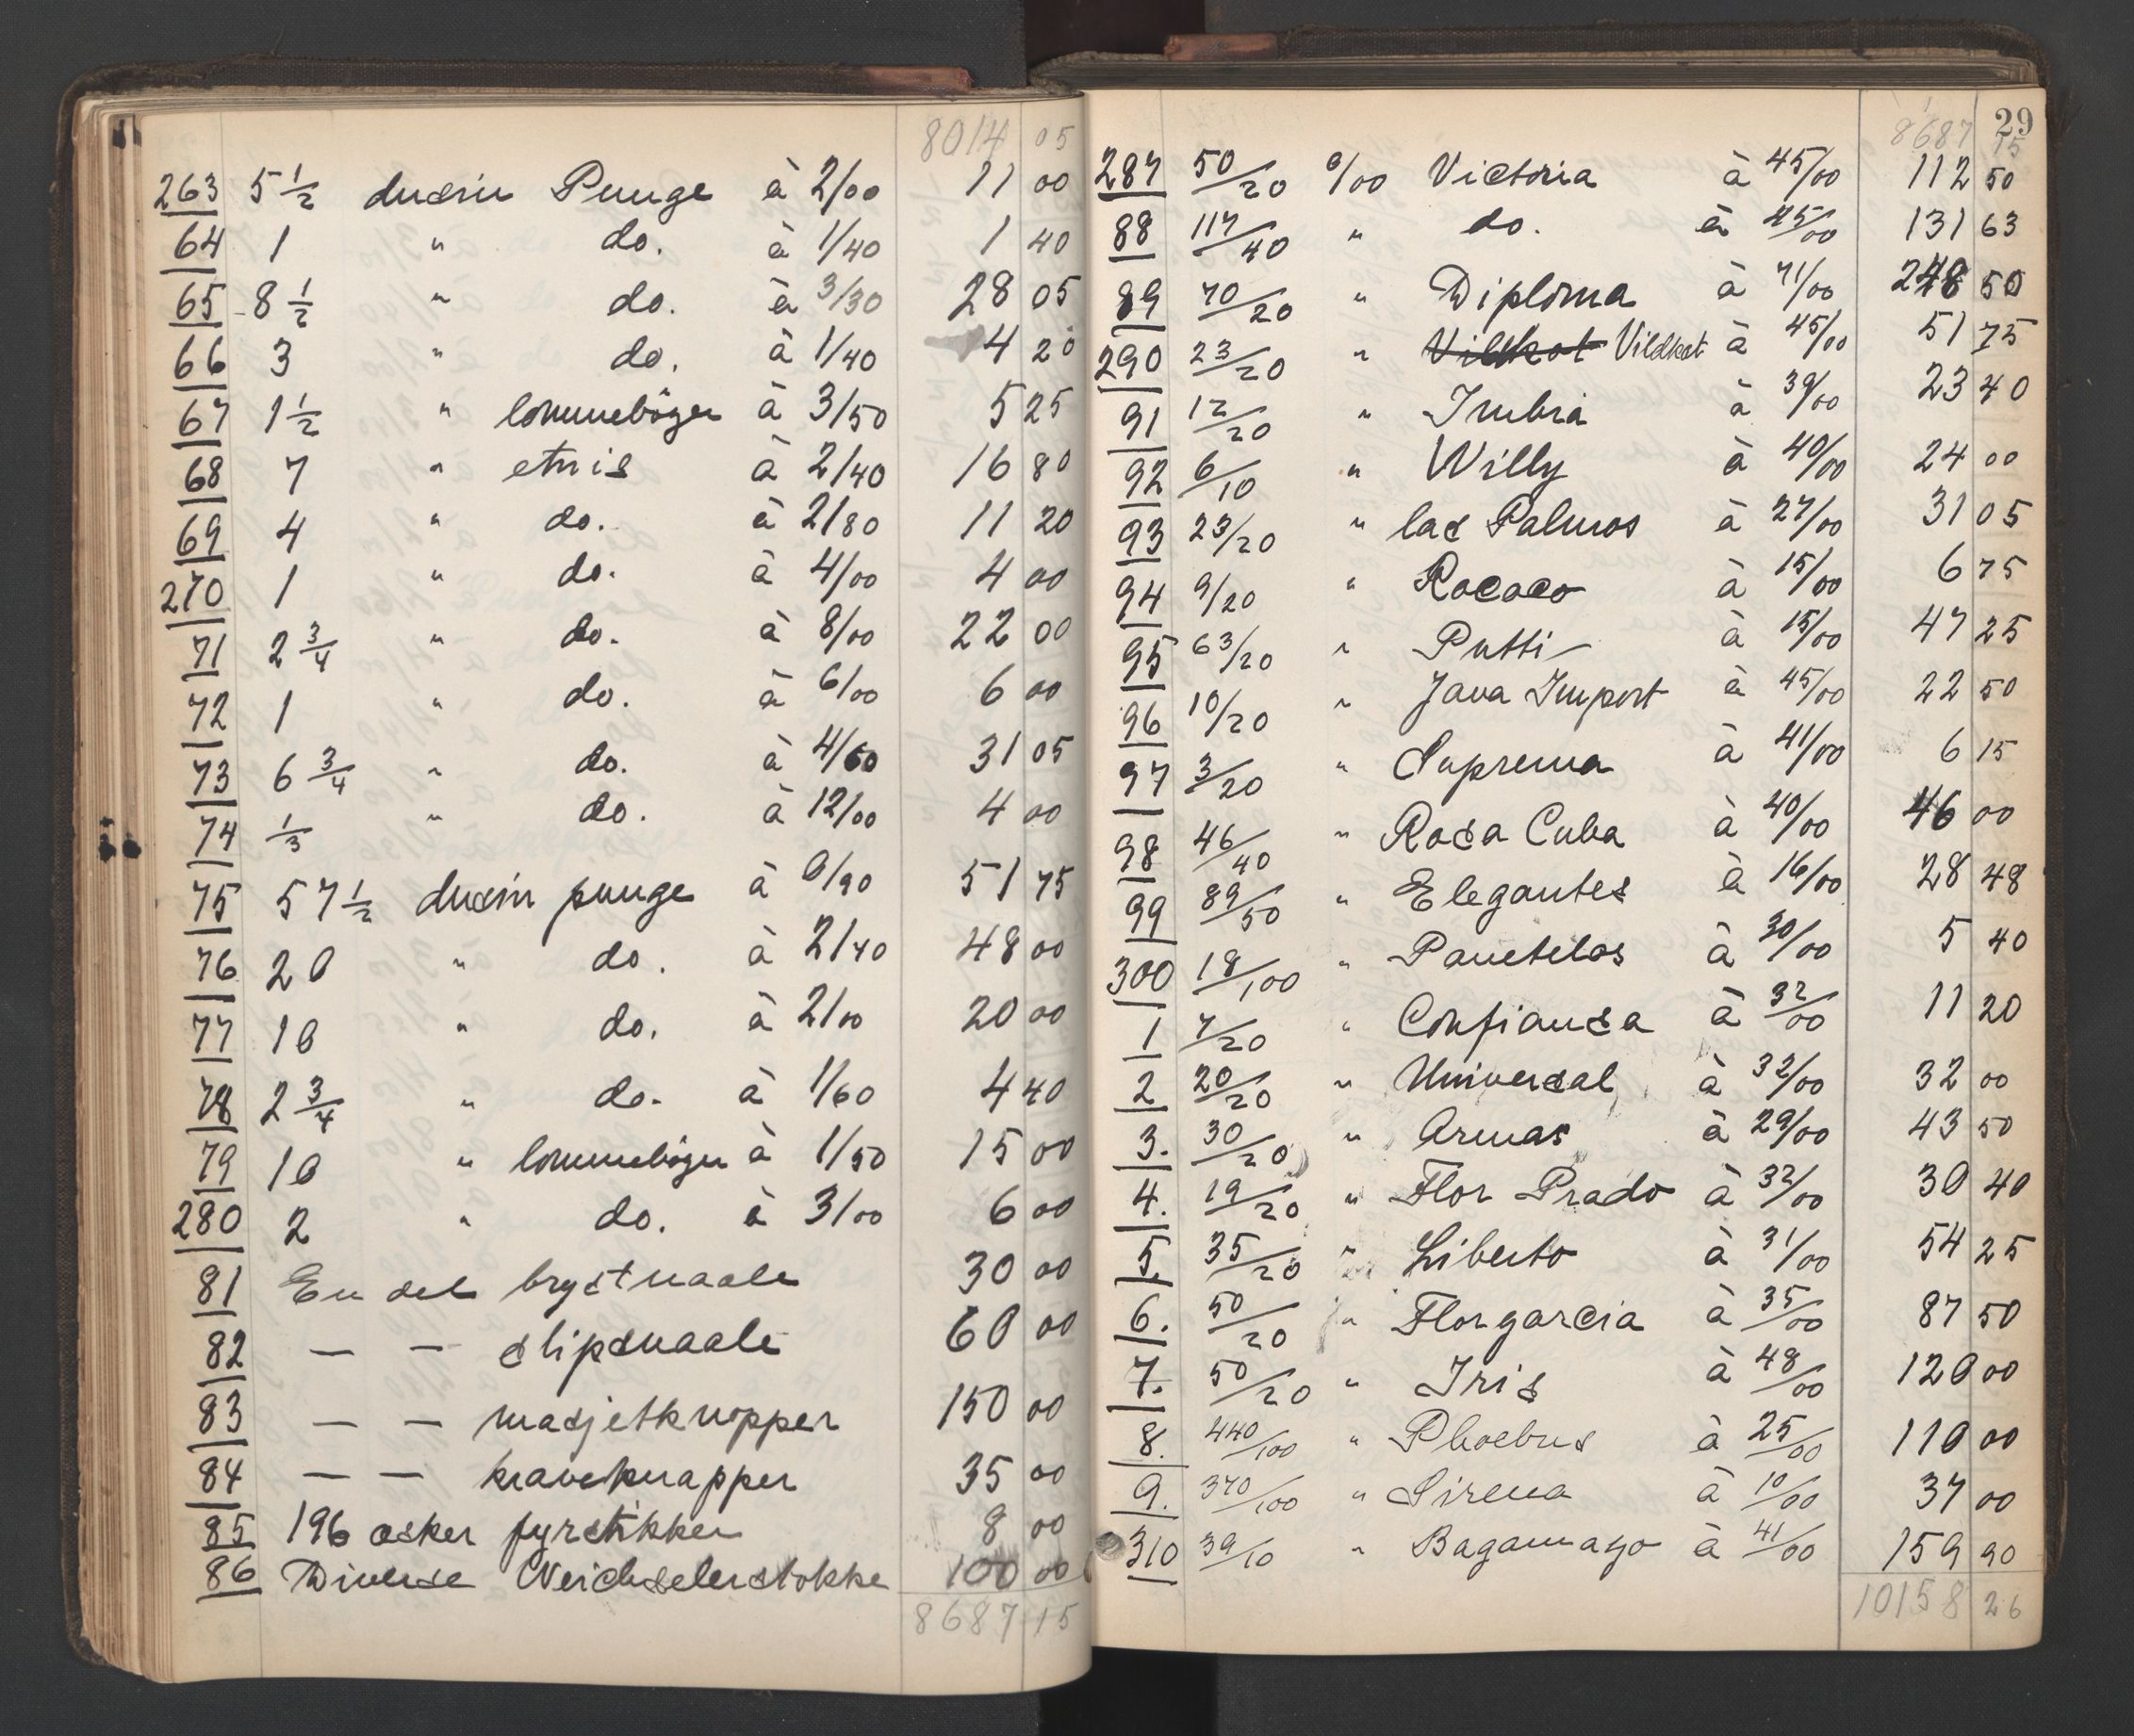 8014 05
263 5 1/2 dusin Punge à 2/00 11 00
64 1 " do. à 1/40 1 40
65 8 1/2 " do. à 3/30 28 05
66 3 " do. à 1/40 4 20
67 1 1/2 " lommebøger à 3/50 5 25
68 7 " etuis à 2/40 16 80
69 4 " do. à 2/80 11 20
270 1 " do. à 4/00 4 00
71 2 3/4 " do. à 8/00 22 00
72 1 " do. à 6/00 6 00
73 6 3/4 " do. à 4/60 31 05
74 1/3 " do. à 12/00 4 00
75 57 1/2 dusin punge à 0/90 51 75
76 20 " do. à 2/40 48 00
77 10 " do. à 2/00 20 00
78 2 3/4 " do. à 1/60 4 40
79 10 " lommebøger à 1/50 15 00
280 2 " do. à 3/00 6 00
81 En del brystnaale 30 00
82 — — slipsnaale 60 00
83 — — masjetknapper 150 00
84 — — kraveknapper 35 00
85 196 æsker fyrstikker 8 00
86 Diverse Weichselerstokke 100 00
8687 15
29
8687 15
287 50/20 0/00 Victoria à 45/00 112 50
88 117/40 " do. à 45/00 131 63
89 70/20 " Diploma à 71/00 248 50
290 23/20 " Vildkat Vildkat à 45/00 51 75
91 12/20 " Imbria à 39/00 23 40
92 6/10 " Willy à 40/00 24 00
93 23/20 " las Palmos à 27/00 31 05
94 9/20 " Rococo à 15/00 6 75
95 63/20 " Putti à 15/00 47 25
96 10/20 " Java Import à 45/00 22 50
97 3/20 " Suprema à 41/00 6 15
98 46/40 " Rosa Cuba à 40/00 46 00
99 89/50 " Elegantes à 16/00 28 48
300 18/100 " Panetelas à 30/00 5 40
1 7/20 " Confiansa à 32/00 11 20
2 20/20 " Universal à 32/00 32 00
3. 30/20 " Armas à 29/00 43 50
4. 19/20 " Flor Prado à 32/00 30 40
5. 35/20 " Liberto à 31/00 54 25
6. 50/20 " Florgarcia à 35/00 87 50
7. 50/20 " Iris à 48/00 120 00
8. 440/100 " Phoebus à 25/00 110 00
9. 370/100 " Sirena à 10/00 37 00
310 39/10 " Bagamayo à 41/00 159 90
10158 26